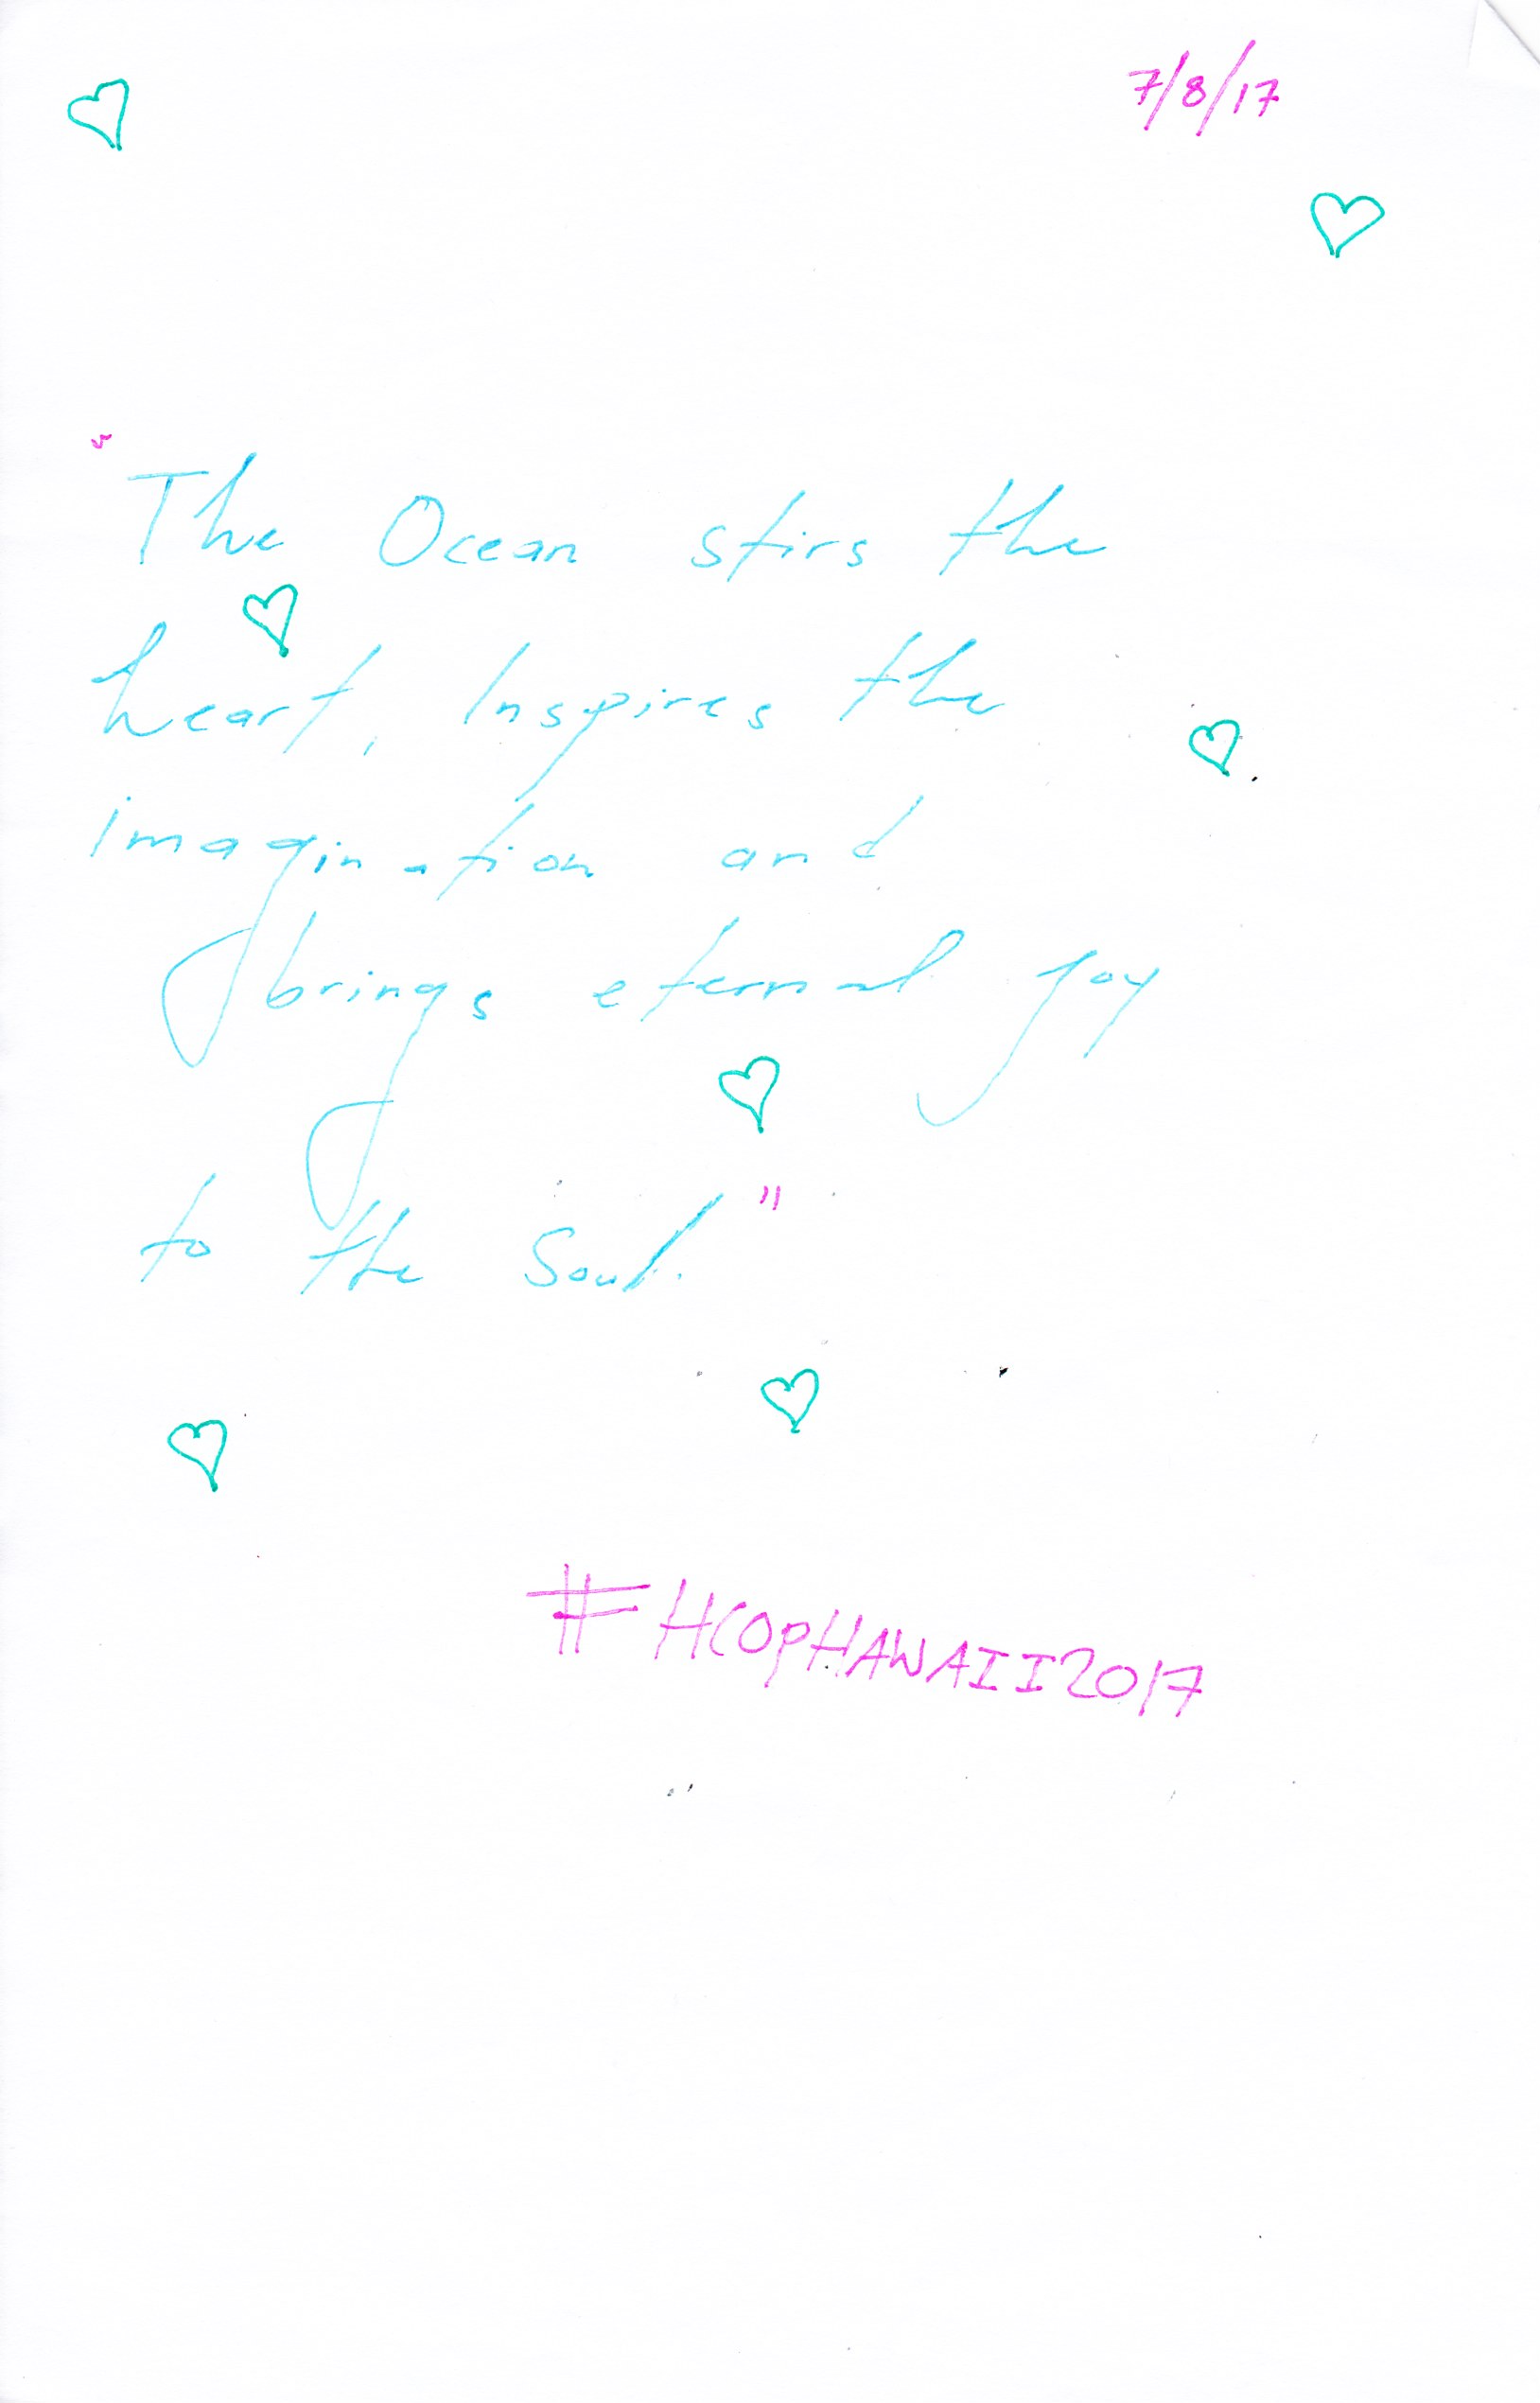 7/8/17
"The Ocean stirs the
heart, Inspires the
imagination and
brings eternal joy
to the Soul."
#HCOPHAWAII2017